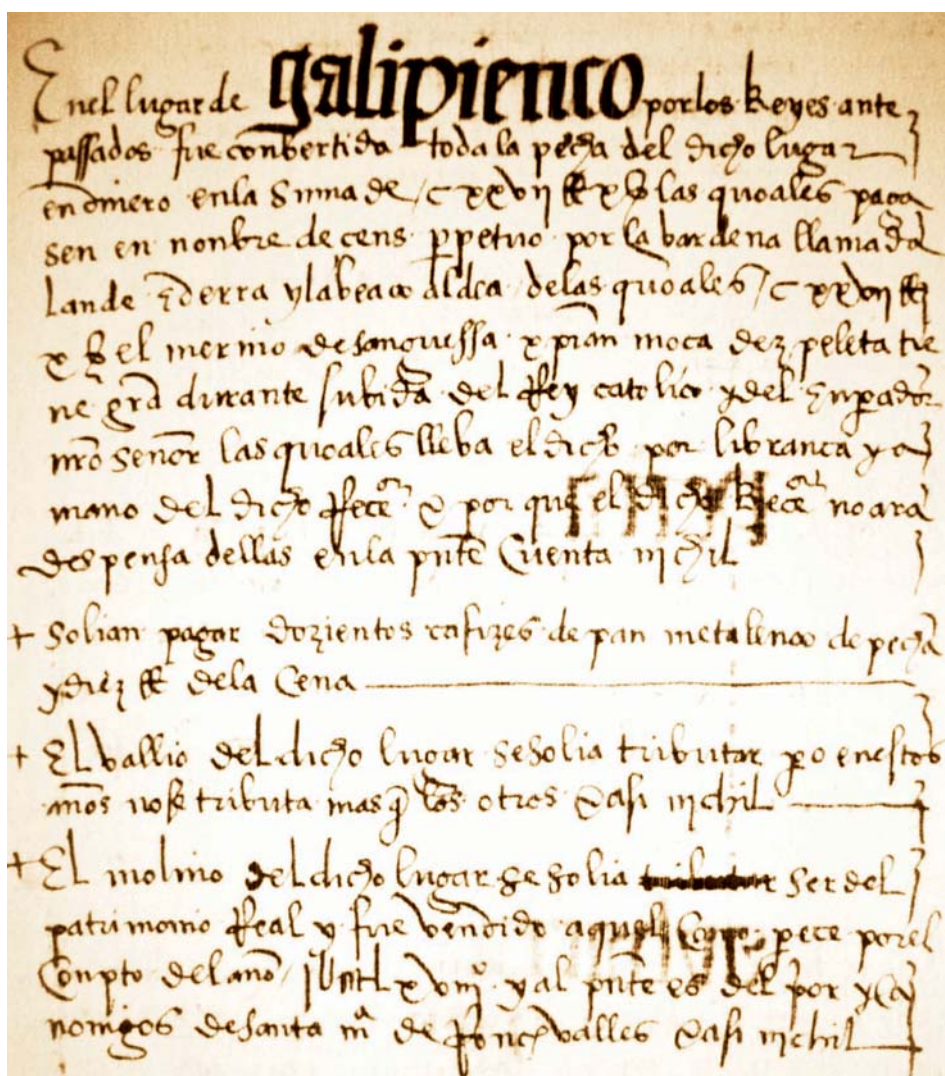 Enel lugar de galipienco por los Reyes ante
passados fue conbertida toda la pecha del dicho lugar
en dinero en la Suma de / c xx vij ££ x ß las quoales paga
sen en nonbre de cens perpetuo por la bardena llamada
lande y la aldea / delas quoales / c xx vij ££
x ß el merino desanguessa moca peleta tie
ne gra durante subida del Rey catolico y del Enperador
nro señor las quoales lleba el dicho por librança ya
mano del dicho Rece or & por que el dicho Rece or no ara
despensa dellas en la pnte Cuenta nichil
+ Solian pagar dozientos cafizes de pan metalenco de pecha
y diez ££ dela Cena
+ El vallio del dicho lugar se solia tributar po enestos
años nose tributa mas q los otros & asi nichil
+ El molino del dicho lugar se solia tributar Ser del
patrimonio Real y fue vendido aquel Como pece por el
Conpto del año y al pnte es del por y Ca
nonigos de santa ma de Ronçesvalles & asi nichil